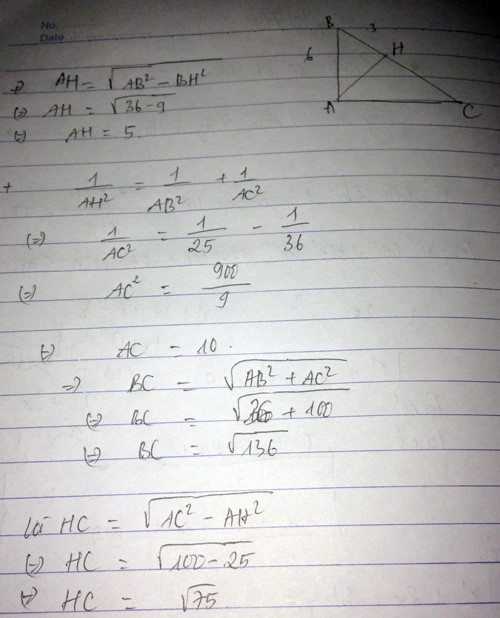 No.
Date
B 3
6 H
A C
+ AH = √(AB² − BH²)
(=) AH = √(36 − 9)
(=) AH = 5
+ 1/AH² = 1/AB² + 1/AC²
(=) 1/AC² = 1/25 − 1/36
(=) AC² = 900/9
(=) AC = 10.
=) BC = √(AB² + AC²)
(=) BC = √(36 + 100)
(=) BC = √136
Có HC = √(AC² − AH²)
(=) HC = √(100 − 25)
(=) HC = √75.